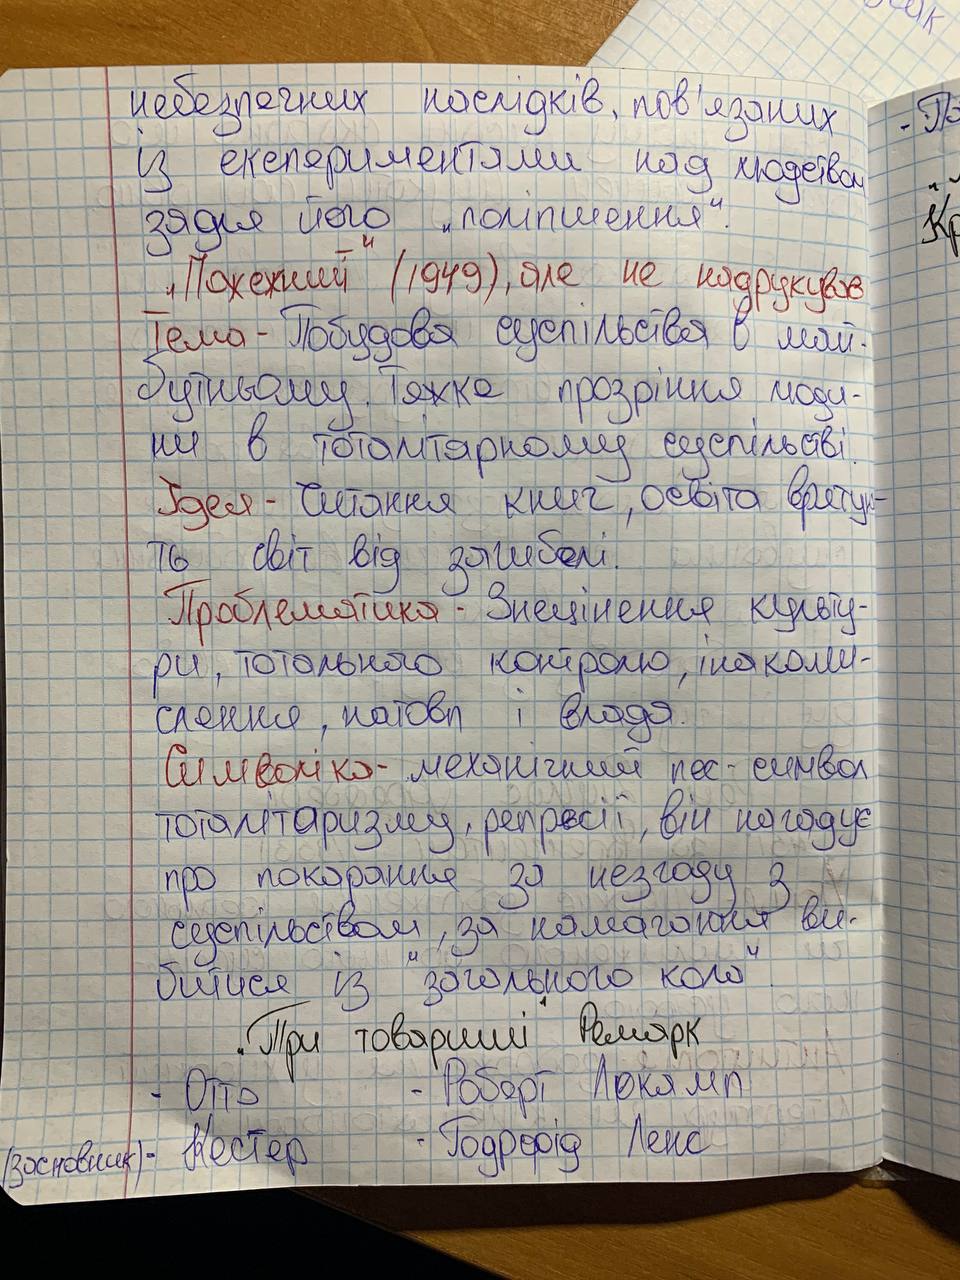 небезпечних наслідків, пов'язаних
із експериментами над людством
задля його „поліпшення".
„Пожежний" (1949), але не надрукував
Тема - Побудова суспільства в май-
бутньому. Тяжке прозріння люди-
ни в тоталітарному суспільстві.
Ідея - Читання книг, освіта врятує-
ть світ від загибелі.
Проблематика - Знецінення культу-
ри, тотального контролю, інакоми-
слення, натовп і влада.
Символіка - механічний пес - символ
тоталітаризму, репресії, він нагадує
про покарання за незгоду з
суспільством, за намагання ви-
битися із "загального кола".
„Три товариші" Ремарк
- Отто - Роберт Локамп
(засновник) - Кестер - Готфрід Ленс
- По
Кр